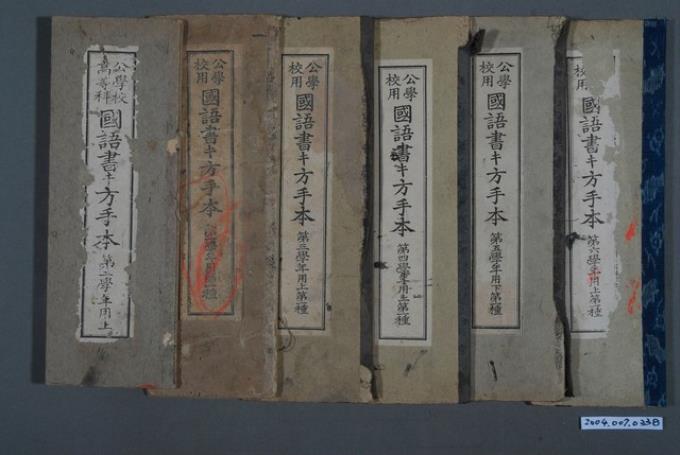 公學校
高等科
國語書キ方手本
第二學年用上
公學
校用
國語書キ方手本
公學
校用
國語書キ方手本
第三學年用上第一種
公學
校用
國語書キ方手本
第四學年用上第一種
公學
校用
國語書キ方手本
第五學年用下第一種
校用
國語書キ方手本
第六學年用上第一種
2004.007.0338